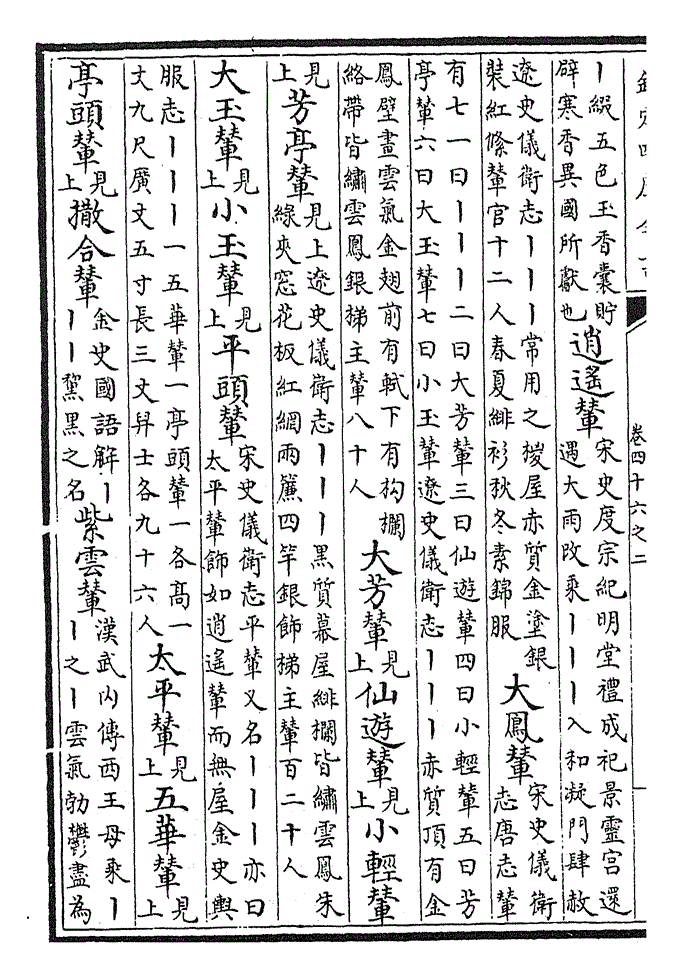 欽定四庫全書
卷四十六之二
丨綴五色玉香囊貯
辟寒香異國所獻也
逍遙輦
宋史度宗紀明堂禮成祀景靈宮還
遇大雨改乘丨丨丨入和凝門肆赦
遼史儀衛志丨丨丨常用之椶屋赤質金塗銀
裝紅絛輦官十二人春夏緋衫秋冬素錦服
大鳳輦
宋史儀衛
志唐志輦
有七一曰丨丨丨二曰大芳輦三曰仙遊輦四曰小輕輦五曰芳
亭輦六曰大玉輦七曰小玉輦遼史儀衛志丨丨丨赤質頂有金
鳳壁畫雲氣金翅前有軾下有构欄
絡帶皆繡雲鳳銀梯主輦八十人
大芳輦
見上
仙遊輦
見上
小輕輦
見上
芳亭輦
見上遼史儀衛志丨丨丨黑質幕屋緋欄皆繡雲鳳朱
綠夾窓花板紅網兩簾四竿銀飾梯主輦百二十人
大玉輦
見上
小玉輦
見上
平頭輦
宋史儀衛志平輦又名丨丨丨亦曰
太平輦飾如逍遙輦而無屋金史輿
服志丨丨丨一五華輦一亭頭輦一各高一
丈九尺廣丈五寸長三丈舁士各九十六人
太平輦
見上
五華輦
見上
亭頭輦
見上
撒合輦
金史國語解丨
丨丨黧黑之名
紫雲輦
漢武內傳西王母乘丨
丨之丨雲氣勃鬱盡為